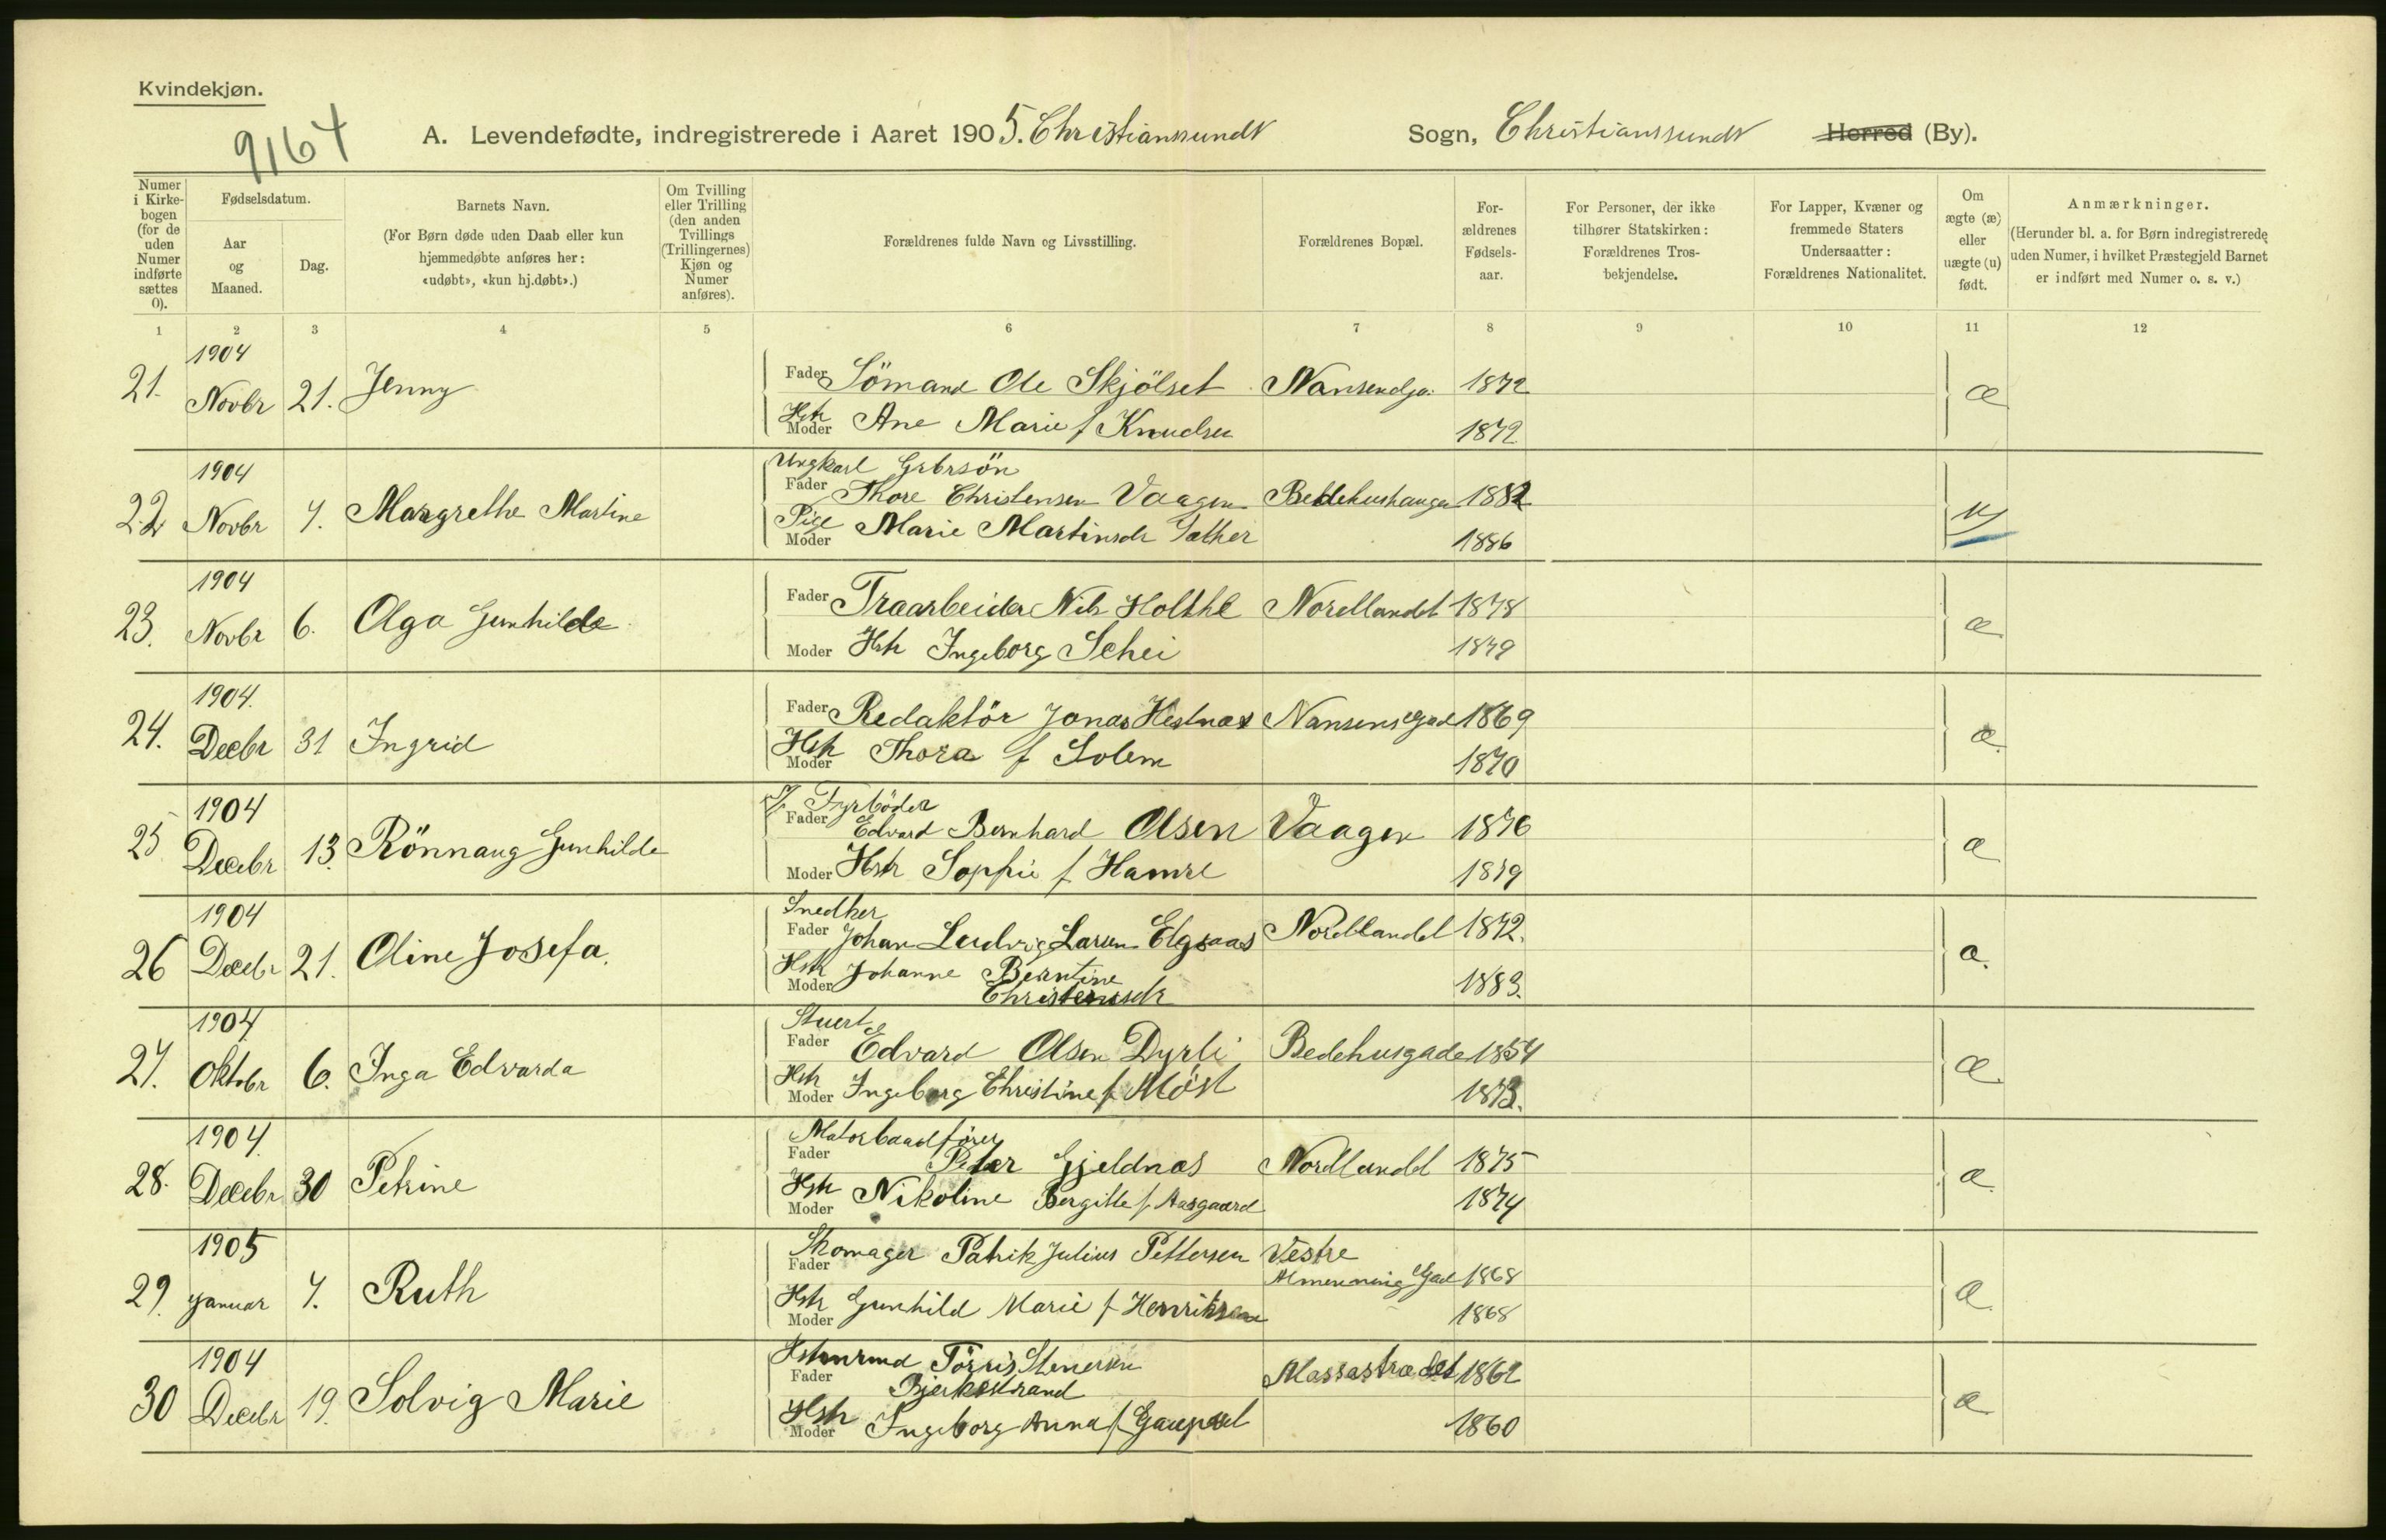 Kvindekjøn.
9164
A. Levendefødte, indregistrerede i Aaret 1905. Christianssunds Sogn, Christianssunds Herred (By).
Numer i Kirkebogen (for de uden Numer indførte sættes 0).
Fødselsdatum.
Aar og Maaned.
Dag.
Barnets Navn.
(For Børn døde uden Daab eller kun hjemmedøbte anføres her: «udøbt», «kun hj.døbt».)
Om Tvilling eller Trilling (den anden Tvillings (Trillingernes) Kjøn og Numer anføres).
Forældrenes fulde Navn og Livsstilling.
Forældrenes Bopæl.
Forældrenes Fødselsaar.
For Personer, der ikke tilhører Statskirken: Forældrenes Trosbekjendelse.
For Lapper, Kvæner og fremmede Staters Undersaatter: Forældrenes Nationalitet.
Om ægte (æ) eller uægte (u) født.
Anmærkninger.
(Herunder bl. a. for Børn indregistrerede uden Numer, i hvilket Præstegjeld Barnet er indført med Numer o. s. v.)
1 2 3 4 5 6 7 8 9 10 11 12
1904
21. Novbr 21. Jenny Fader Sömand Ole Skjölset Nansensga. 1872 æ
Hstr Moder Ane Marie f Knudsen 1872
1904 Ungkarl Grbrsön
22 Novbr 7. Margrethe Martine Fader Thore Christensen Vaagen Bedehushaugen 1882 u
Pige Moder Marie Martinsdr Sæther 1886
1904
23. Novbr 6. Olga Gunhilde Fader Træarbeider Nils Holthe Nordlandet 1878 æ
Moder Hstr Ingeborg Schei 1879
1904.
24. Decbr 31 Ingrid Fader Redaktör Jonas Hestnæs Nansensgad 1869 æ
Hstr Moder Thora f Solem 1870
1904 Fyrböder
25 Decebr 13. Rönnaug Gunhilde Fader Edvard Bernhard Olsen Vaagen 1876 æ
Moder Hstr Sophie f Hamre 1879
1904 Snedker
26 Decebr 21. Oline Josefa. Fader Johan Ludvig Larsen Elgsaas Nordlandet 1872. æ.
Hstr Moder Johanne Berntine
Christensdr 1883.
1904 Stuert
27. Oktobr 6. Inga Edvarda Fader Edvard Olsen Dyrli Bedehusgade 1854 æ
Hstr Moder Ingeborg Christine f Möst 1873.
1904. Motorbaadförer
28. Decebr 30 Petrine Fader Peter Gjeldnæs Nordlandet 1875 æ
Hstr Moder Nikoline Bergitte f Aasgaard 1874
1905 Skomager Patrik Julius Pettersen Vestre
29. Januar 7. Ruth Fader Almenning Gad 1868 æ
Hstr Moder Gunhild Marie f Henriksen 1868
1904 Törris Stenersen
30 Decebr 19. Solvig Marie Fader Bjerkestrand Massastrædet 1862 æ
Hstr Moder Ingeborg Anna f Gaupset 1860